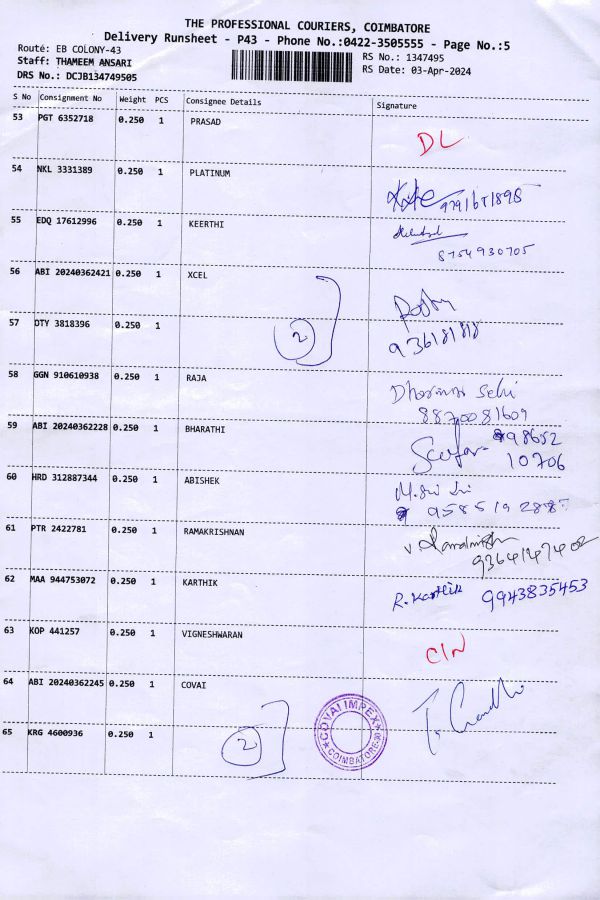 THE PROFESSIONAL COURIERS, COIMBATORE
Delivery Runsheet - P43 - Phone No.:0422-3505555 - Page No.:5
Route: EB COLONY-43
RS No.: 1347495
Staff: THAMEEM ANSARI
RS Date: 03-Apr-2024
DRS No.: DCJB134749505
S No Consignment No Weight PCS Consignee Details Signature
53 PGT 6352718 0.250 1 PRASAD
DL
54 NKL 3331389 0.250 1 PLATINUM
9791671898
55 EDQ 17612996 0.250 1 KEERTHI
8754930705
56 ABI 20240362421 0.250 1 XCEL
57 OTY 3818396 0.250 1
2
936181818
58 GGN 910610938 0.250 1 RAJA
Dharani Selvi
8870081609
59 ABI 20240362228 0.250 1 BHARATHI
98652
10706
60 HRD 312887344 0.250 1 ABISHEK
M. Sri
61 PTR 2422781 0.250 1 RAMAKRISHNAN
62 MAA 944753072 0.250 1 KARTHIK
R. Karthik 9943835453
63 KOP 441257 0.250 1 VIGNESHWARAN
C/N
64 ABI 20240362245 0.250 1 COVAI
65 KRG 4600936 0.250 1
2
COVAI IMPEX
COIMBATORE